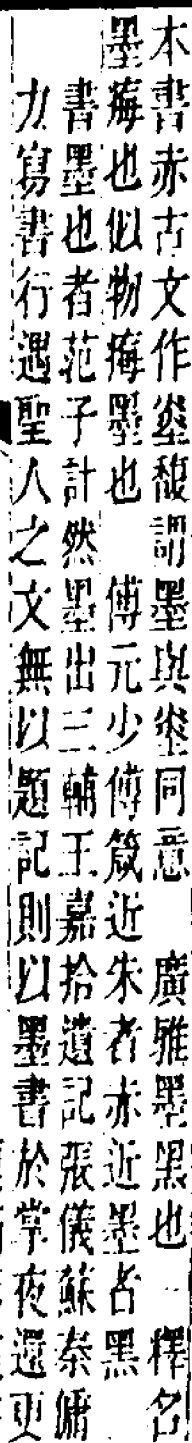 本書赤古文作烾馥謂墨與烾同意　廣雅墨黑也　釋名
墨痗也似物痗墨也　傅元少傅箴近朱者赤近墨者黑
書墨也者范子計然墨出三輔王嘉拾遺記張儀蘇秦傭
力寫書行遇聖人之文無以題記則以墨書於掌夜還更